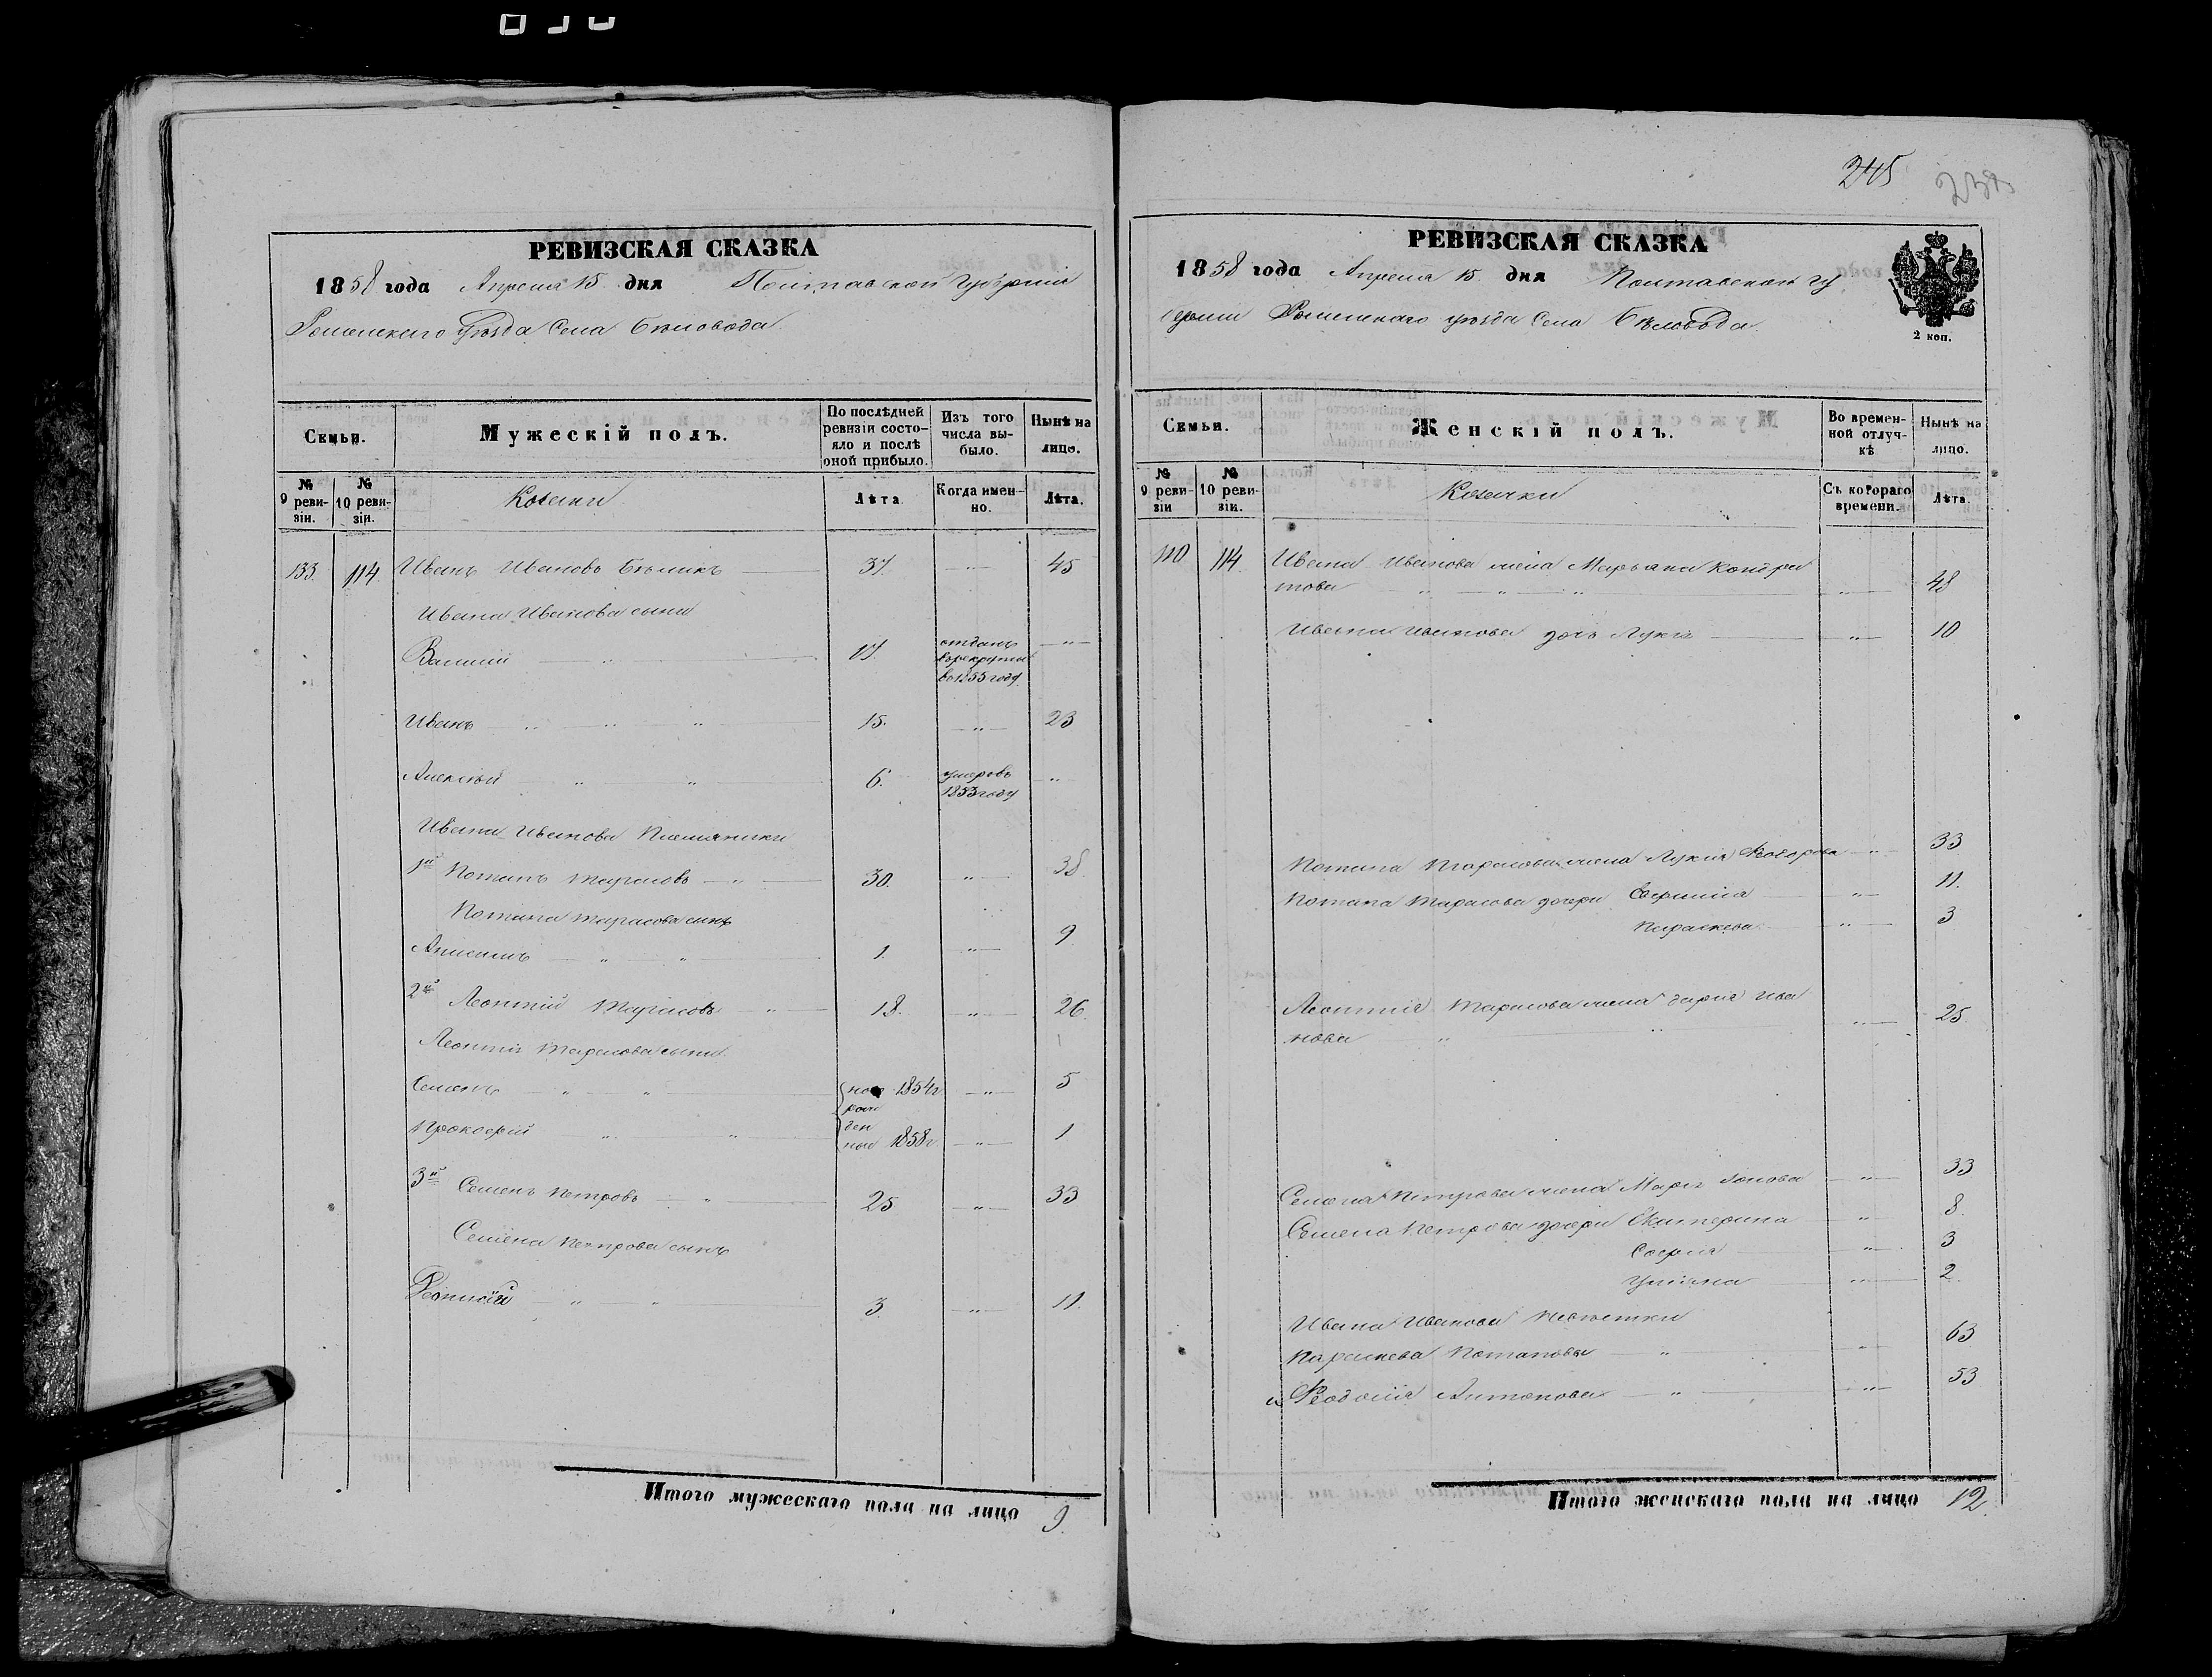 245
РЕВИЗСКАЯ СКАЗКА
1858 года Апреля 15 дня Полтавской Губерніи
Роменскаго Уѣзда Села Бѣловода
Семьи.
Мужескій полъ.
По послѣдней ревизіи состояло и послѣ оной прибыло.
Изъ того числа выбыло.
Нынѣ на лицо.
№ 9 ревизіи.
№ 10 ревизіи.
Козаки
Лѣта
Когда именно.
Лѣта.
133. 114. Иванъ Ивановъ 37. 45
Ивана Иванова сыны
Василій 17. отданъ в рекруты в 1855 году
Иванъ 15. 23
Алексѣй 6. умеръ в 1853 году
Ивана Иванова Племянники
1й Потапъ Тарасовъ 30. 38
Потапа Тарасова сынъ
1. 9
2й Леонтій Тарасовъ 18. 26.
Леонтія Тарасова сыны
Семенъ 1854г 5
рож
ден
Прокофій ные 1858г. 1
3й Семенъ Петровъ 25 33
Семена Петрова сынъ
3. 11.
Итого мужескаго пола на лицо 9.
РЕВИЗСКАЯ СКАЗКА
1858 года Апреля 15 дня Полтавской Гу
берніи Роменскаго уѣзда Села Бѣловода
2 коп.
Семьи.
Женскій полъ.
Во временной отлучкѣ
Нынѣ на лицо.
№ 9 ревизіи
№ 10 ревизіи.
Козачки
Съ котораго времени.
Лѣта.
110 114 Ивана Иванова жена Марьяна Кондра
това 48
Ивана Иванова дочь 10
Потапа Тарасова жена Лукія Ѳедорова 33
Потапа Тарасова дочери 11.
Параскева 3
Леонтія Тарасова жена Дарія Ива
нова 25
Семена Петрова жена Марія 33
Семена Петрова дочери Екатерина 8.
Софія 3
Уліяна 2
Ивана Иванова невѣстки
Параскева Потапова 63
и Ѳеодосія Антонова 53
Итого женскаго пола на лицо 12.